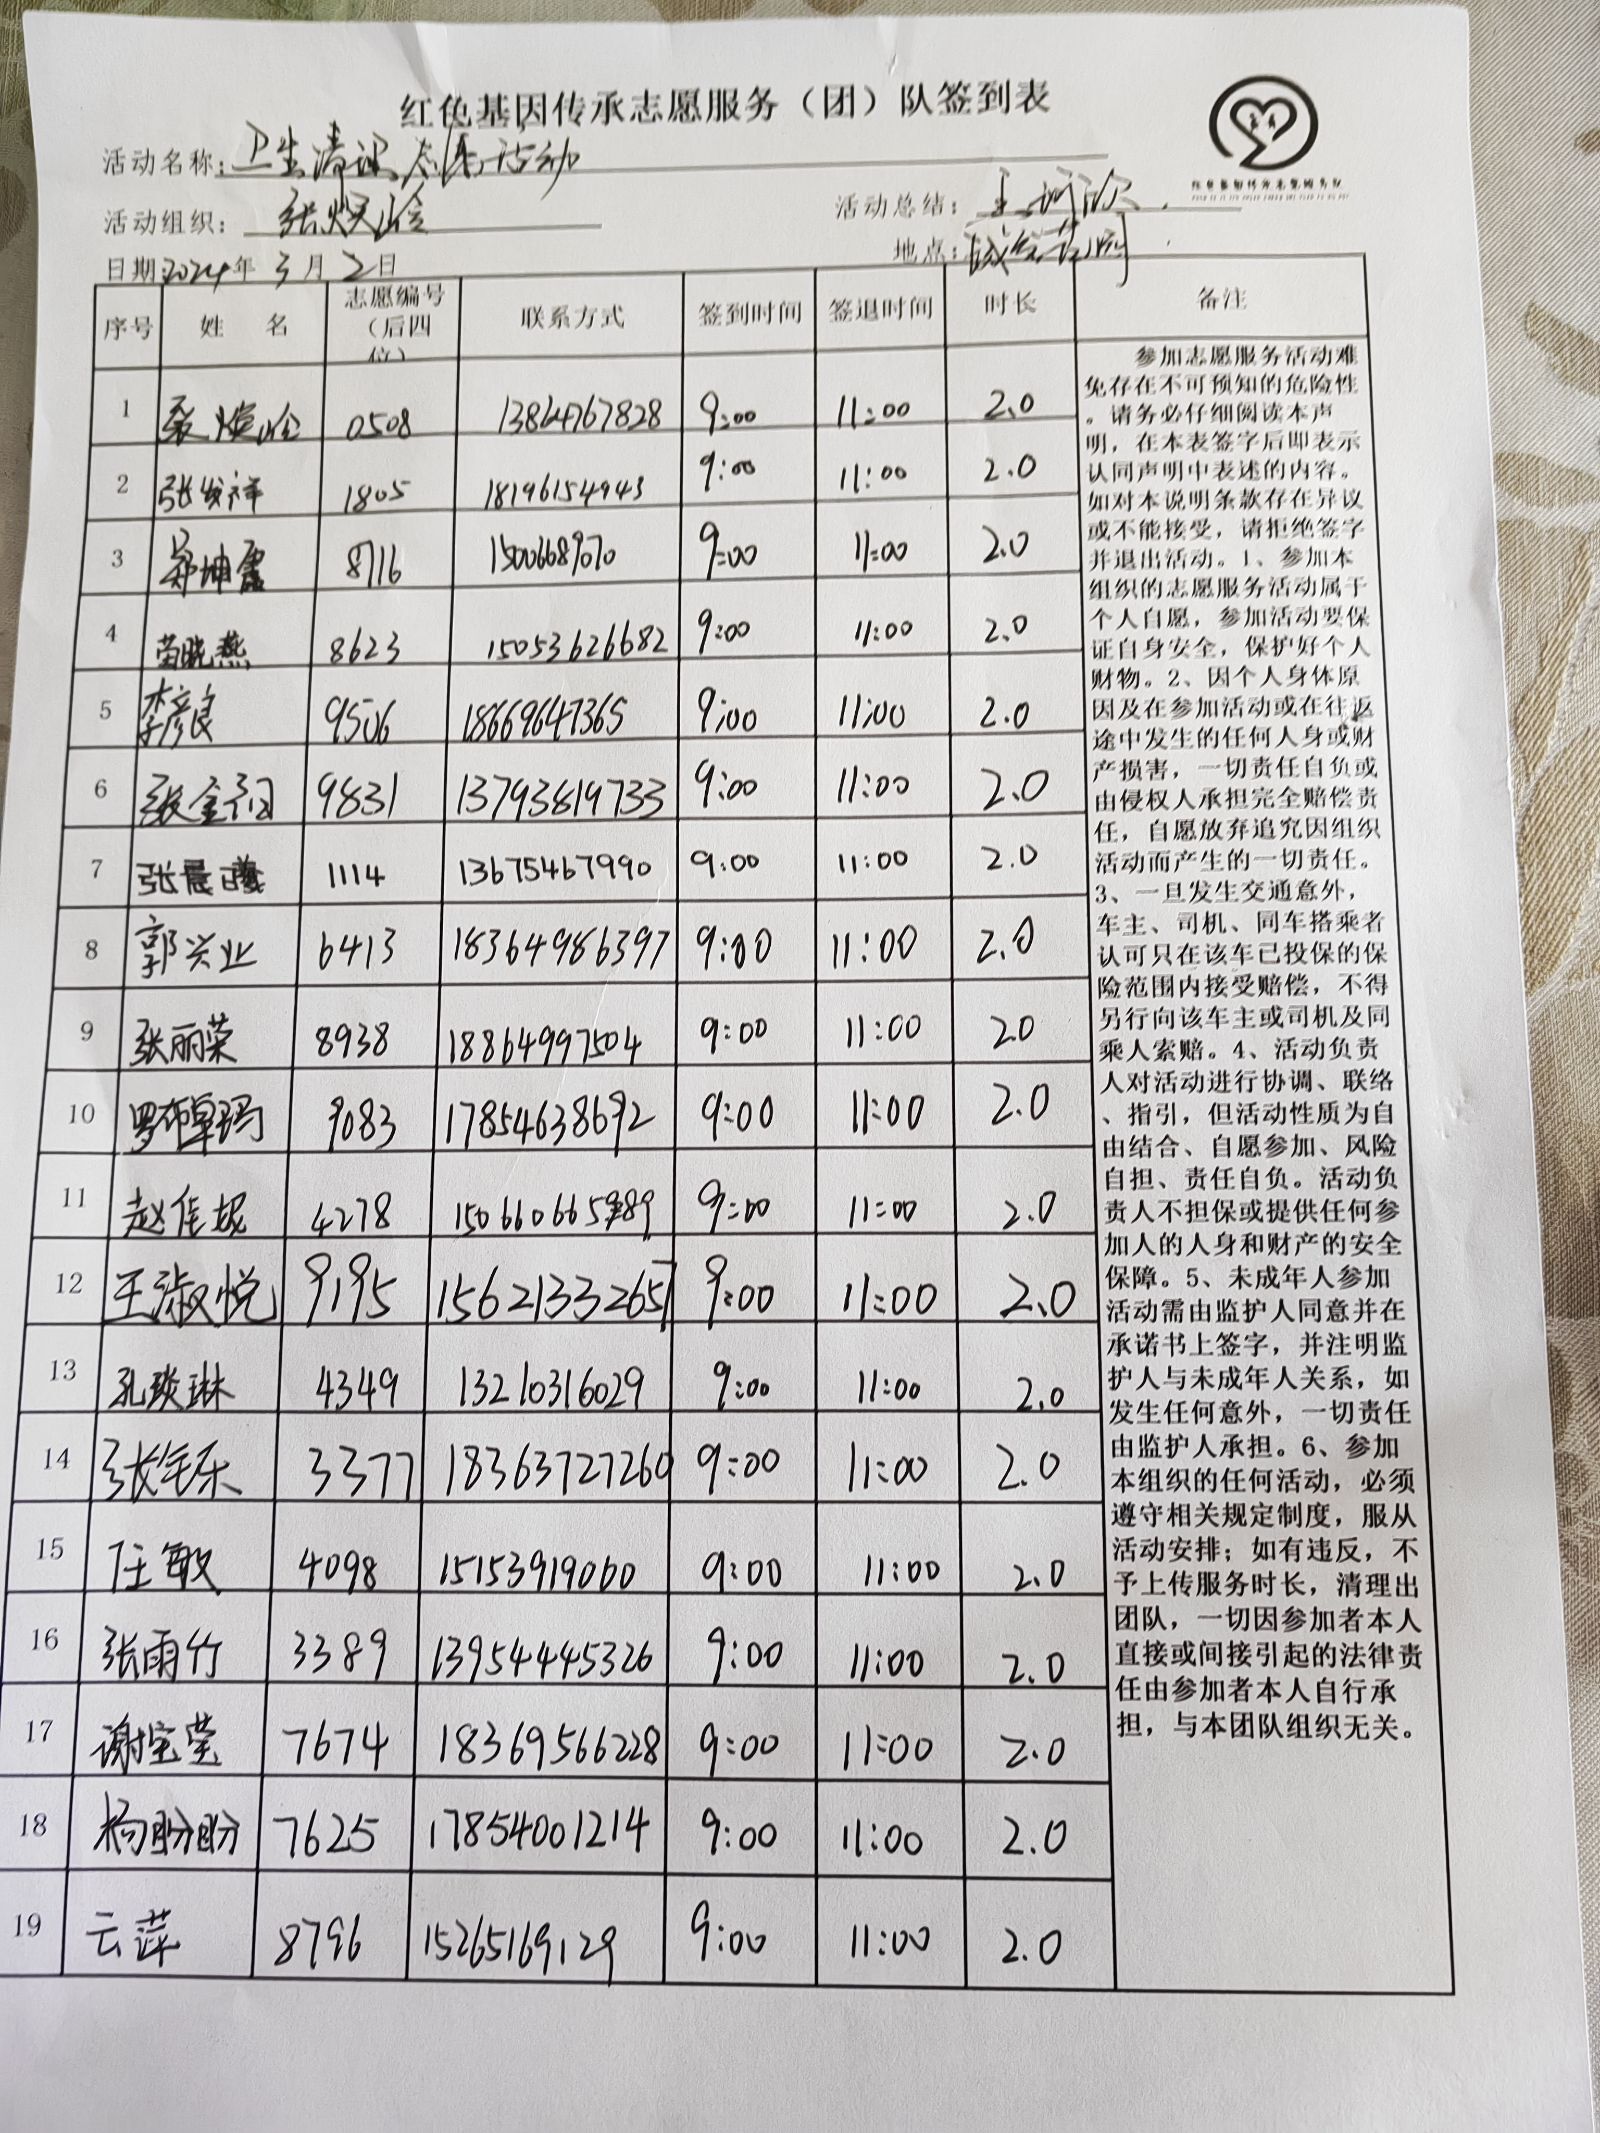 红色基因传承志愿服务（团）队签到表
活动名称：卫生清理志愿活动
活动组织：张焕晗 活动总结：
日期：2024年3月2日 地点：
序号 姓 名 志愿编号（后四位） 联系方式 签到时间 签退时间 时长 备注
1 0508 13864767828 9:00 11:00 2.0
2 张发祥 1805 18196154943 9:00 11:00 2.0
3 郑坤露 8716 15006689070 9:00 11:00 2.0
4 苗晓燕 8623 15053626682 9:00 11:00 2.0
5 李彦良 9506 18669647365 9:00 11:00 2.0
6 9831 13793819733 9:00 11:00 2.0
7 张晨曦 1114 13675467990 9:00 11:00 2.0
8 郭兴业 6413 18364986397 9:00 11:00 2.0
9 张丽荣 8938 18864997504 9:00 11:00 20
10 罗布卓玛 9083 17854638692 9:00 11:00 2.0
11 赵佳妮 4278 9:00 11:00 2.0
12 王淑悦 9195 15621332657 9:00 11:00 2.0
13 孔琰琳 4349 13210316029 9:00 11:00 2.0
14 3377 18363727260 9:00 11:00 2.0
15 任敏 4098 15153919060 9:00 11:00 2.0
16 张雨竹 3389 13954445326 9:00 11:00 2.0
17 谢宝莹 7674 18369566228 9:00 11:00 2.0
18 杨盼盼 7625 17854001214 9:00 11:00 2.0
19 云萍 8796 15265169129 9:00 11:00 2.0
参加志愿服务活动难
免存在不可预知的危险性
。请务必仔细阅读本声
明，在本表签字后即表示
认同声明中表述的内容。
如对本说明条款存在异议
或不能接受，请拒绝签字
并退出活动。1、参加本
组织的志愿服务活动属于
个人自愿，参加活动要保
证自身安全，保护好个人
财物。2、因个人身体原
因及在参加活动或在往返
途中发生的任何人身或财
产损害，一切责任自负或
由侵权人承担完全赔偿责
任，自愿放弃追究因组织
活动而产生的一切责任。
3、一旦发生交通意外，
车主、司机、同车搭乘者
认可只在该车已投保的保
险范围内接受赔偿，不得
另行向该车主或司机及同
乘人索赔。4、活动负责
人对活动进行协调、联络
、指引，但活动性质为自
由结合、自愿参加、风险
自担、责任自负。活动负
责人不担保或提供任何参
加人的人身和财产的安全
保障。5、未成年人参加
活动需由监护人同意并在
承诺书上签字，并注明监
护人与未成年人关系，如
发生任何意外，一切责任
由监护人承担。6、参加
本组织的任何活动，必须
遵守相关规定制度，服从
活动安排；如有违反，不
予上传服务时长，清理出
团队，一切因参加者本人
直接或间接引起的法律责
任由参加者本人自行承
担，与本团队组织无关。